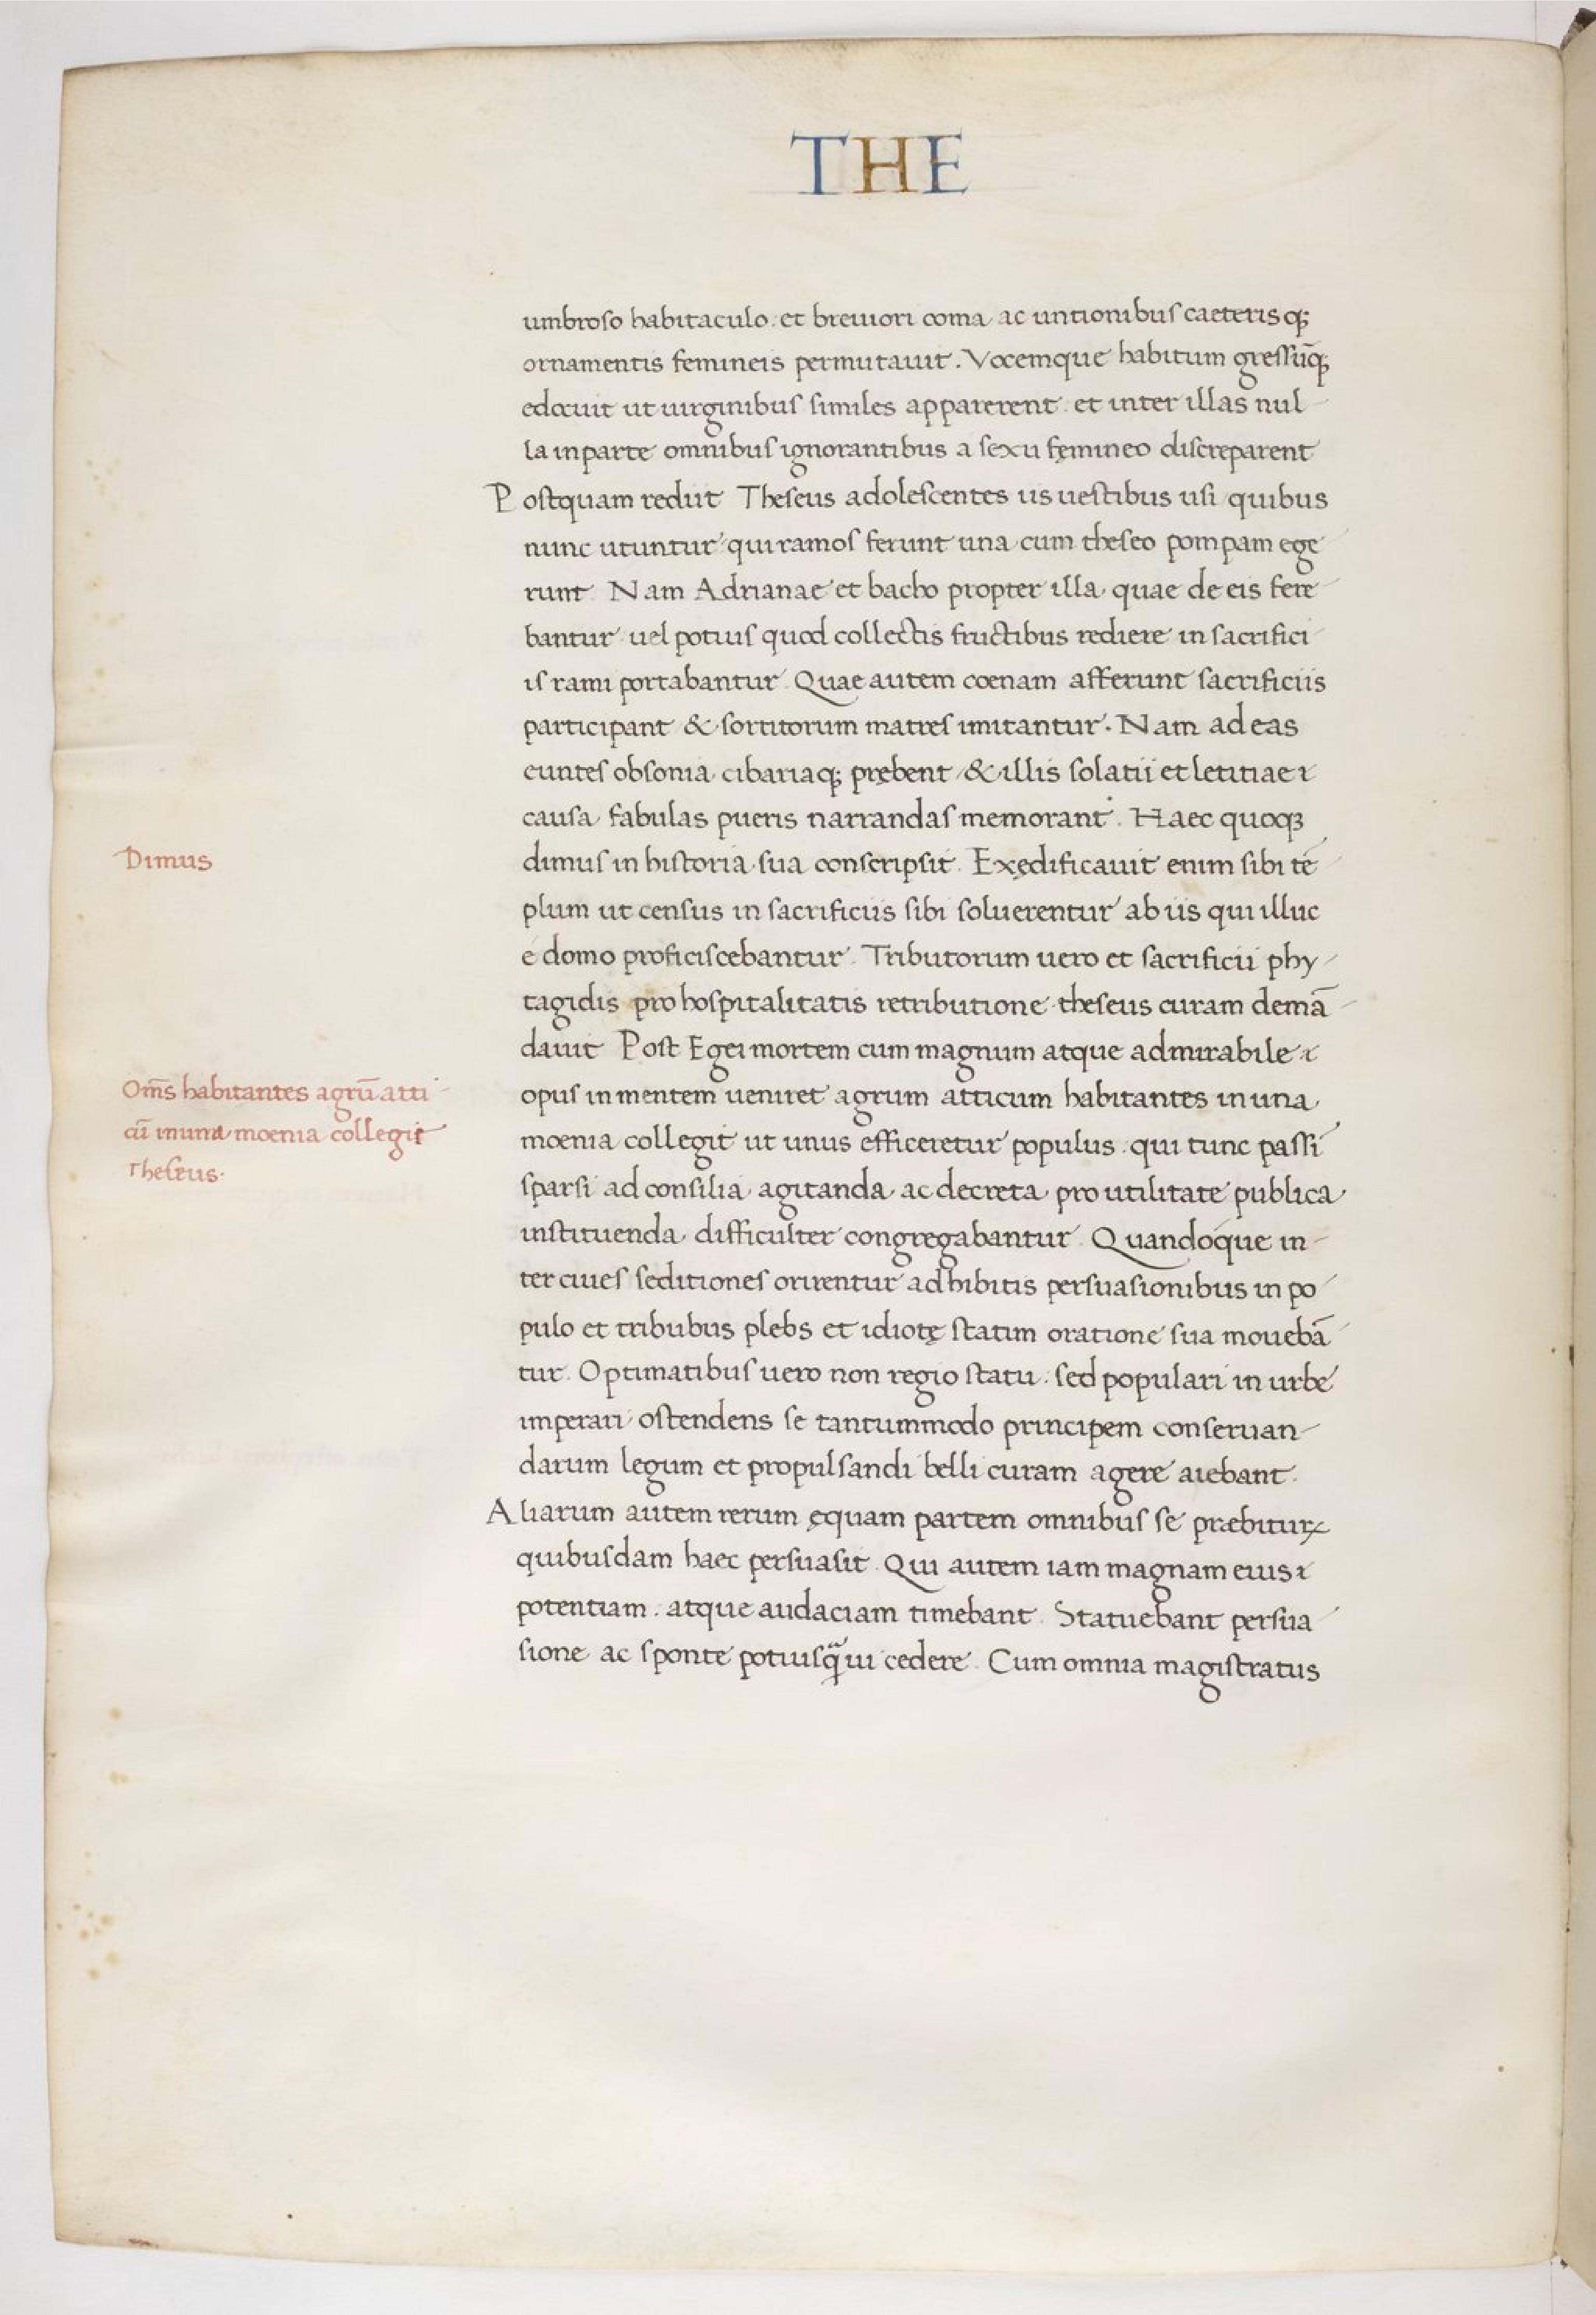 THE
umbroso habitaculo: et breuiori coma ac untionibus caeterisq;
ornamentis femineis permutauit. Vocemque habitum gressūq;
edocuit ut uirginibus similes apparerent: et inter illas nul-
la inparte omnibus ignorantibus a sexu femineo discreparent
Postquam rediit Theseus adolescentes iis uestibus usi quibus
nunc utuntur qui ramos ferunt una cum theseo pompam ege-
runt. Nam Adrianae et bacho propter illa quae de eis fere-
bantur uel potius quod collectis fructibus rediere in sacrifici-
is rami portabantur. Quae autem coenam afferunt sacrificiis
participant & sortitorum matres imitantur. Nam ad eas
euntes obsonia cibariaq; prębent & illis solatii et letitiae
causa fabulas pueris narrandas memorant. Haec quoq3
Dimus
dimus in historia sua conscripsit. Exędificauit enim sibi tē-
plum ut census in sacrificiis sibi soluerentur ab iis qui illuc
e domo proficiscebantur. Tributorum uero et sacrificii phy-
tagidis pro hospitalitatis retributione theseus curam demā-
dauit Post Egei mortem cum magnum atque admirabile
Om̄s habitantes agrū atti-
cū inuna moenia collegit
Theseus.
opus in mentem ueniret agrum atticum habitantes in una
moenia collegit ut unus efficeretur populus. qui tunc passi
sparsi ad consilia agitanda ac decreta pro utilitate publica
instituenda difficulter congregabantur. Quandoque in-
ter ciues seditiones orirentur adhibitis persuasionibus in po-
pulo et tribubus plebs et idiotę statim oratione sua mouebā-
tur. Optimatibus uero non regio statu: sed populari in urbe
imperari ostendens se tantummodo principem conseruan-
darum legum et propulsandi belli curam agere aiebant.
Aliarum autem rerum ęquam partem omnibus se præbiturꝝ
quibusdam haec persuasit. Qui autem iam magnam eius
potentiam. atque audaciam timebant. Statuebant persua-
sione ac sponte potiusq̃ ui cedere. Cum omnia magistratus